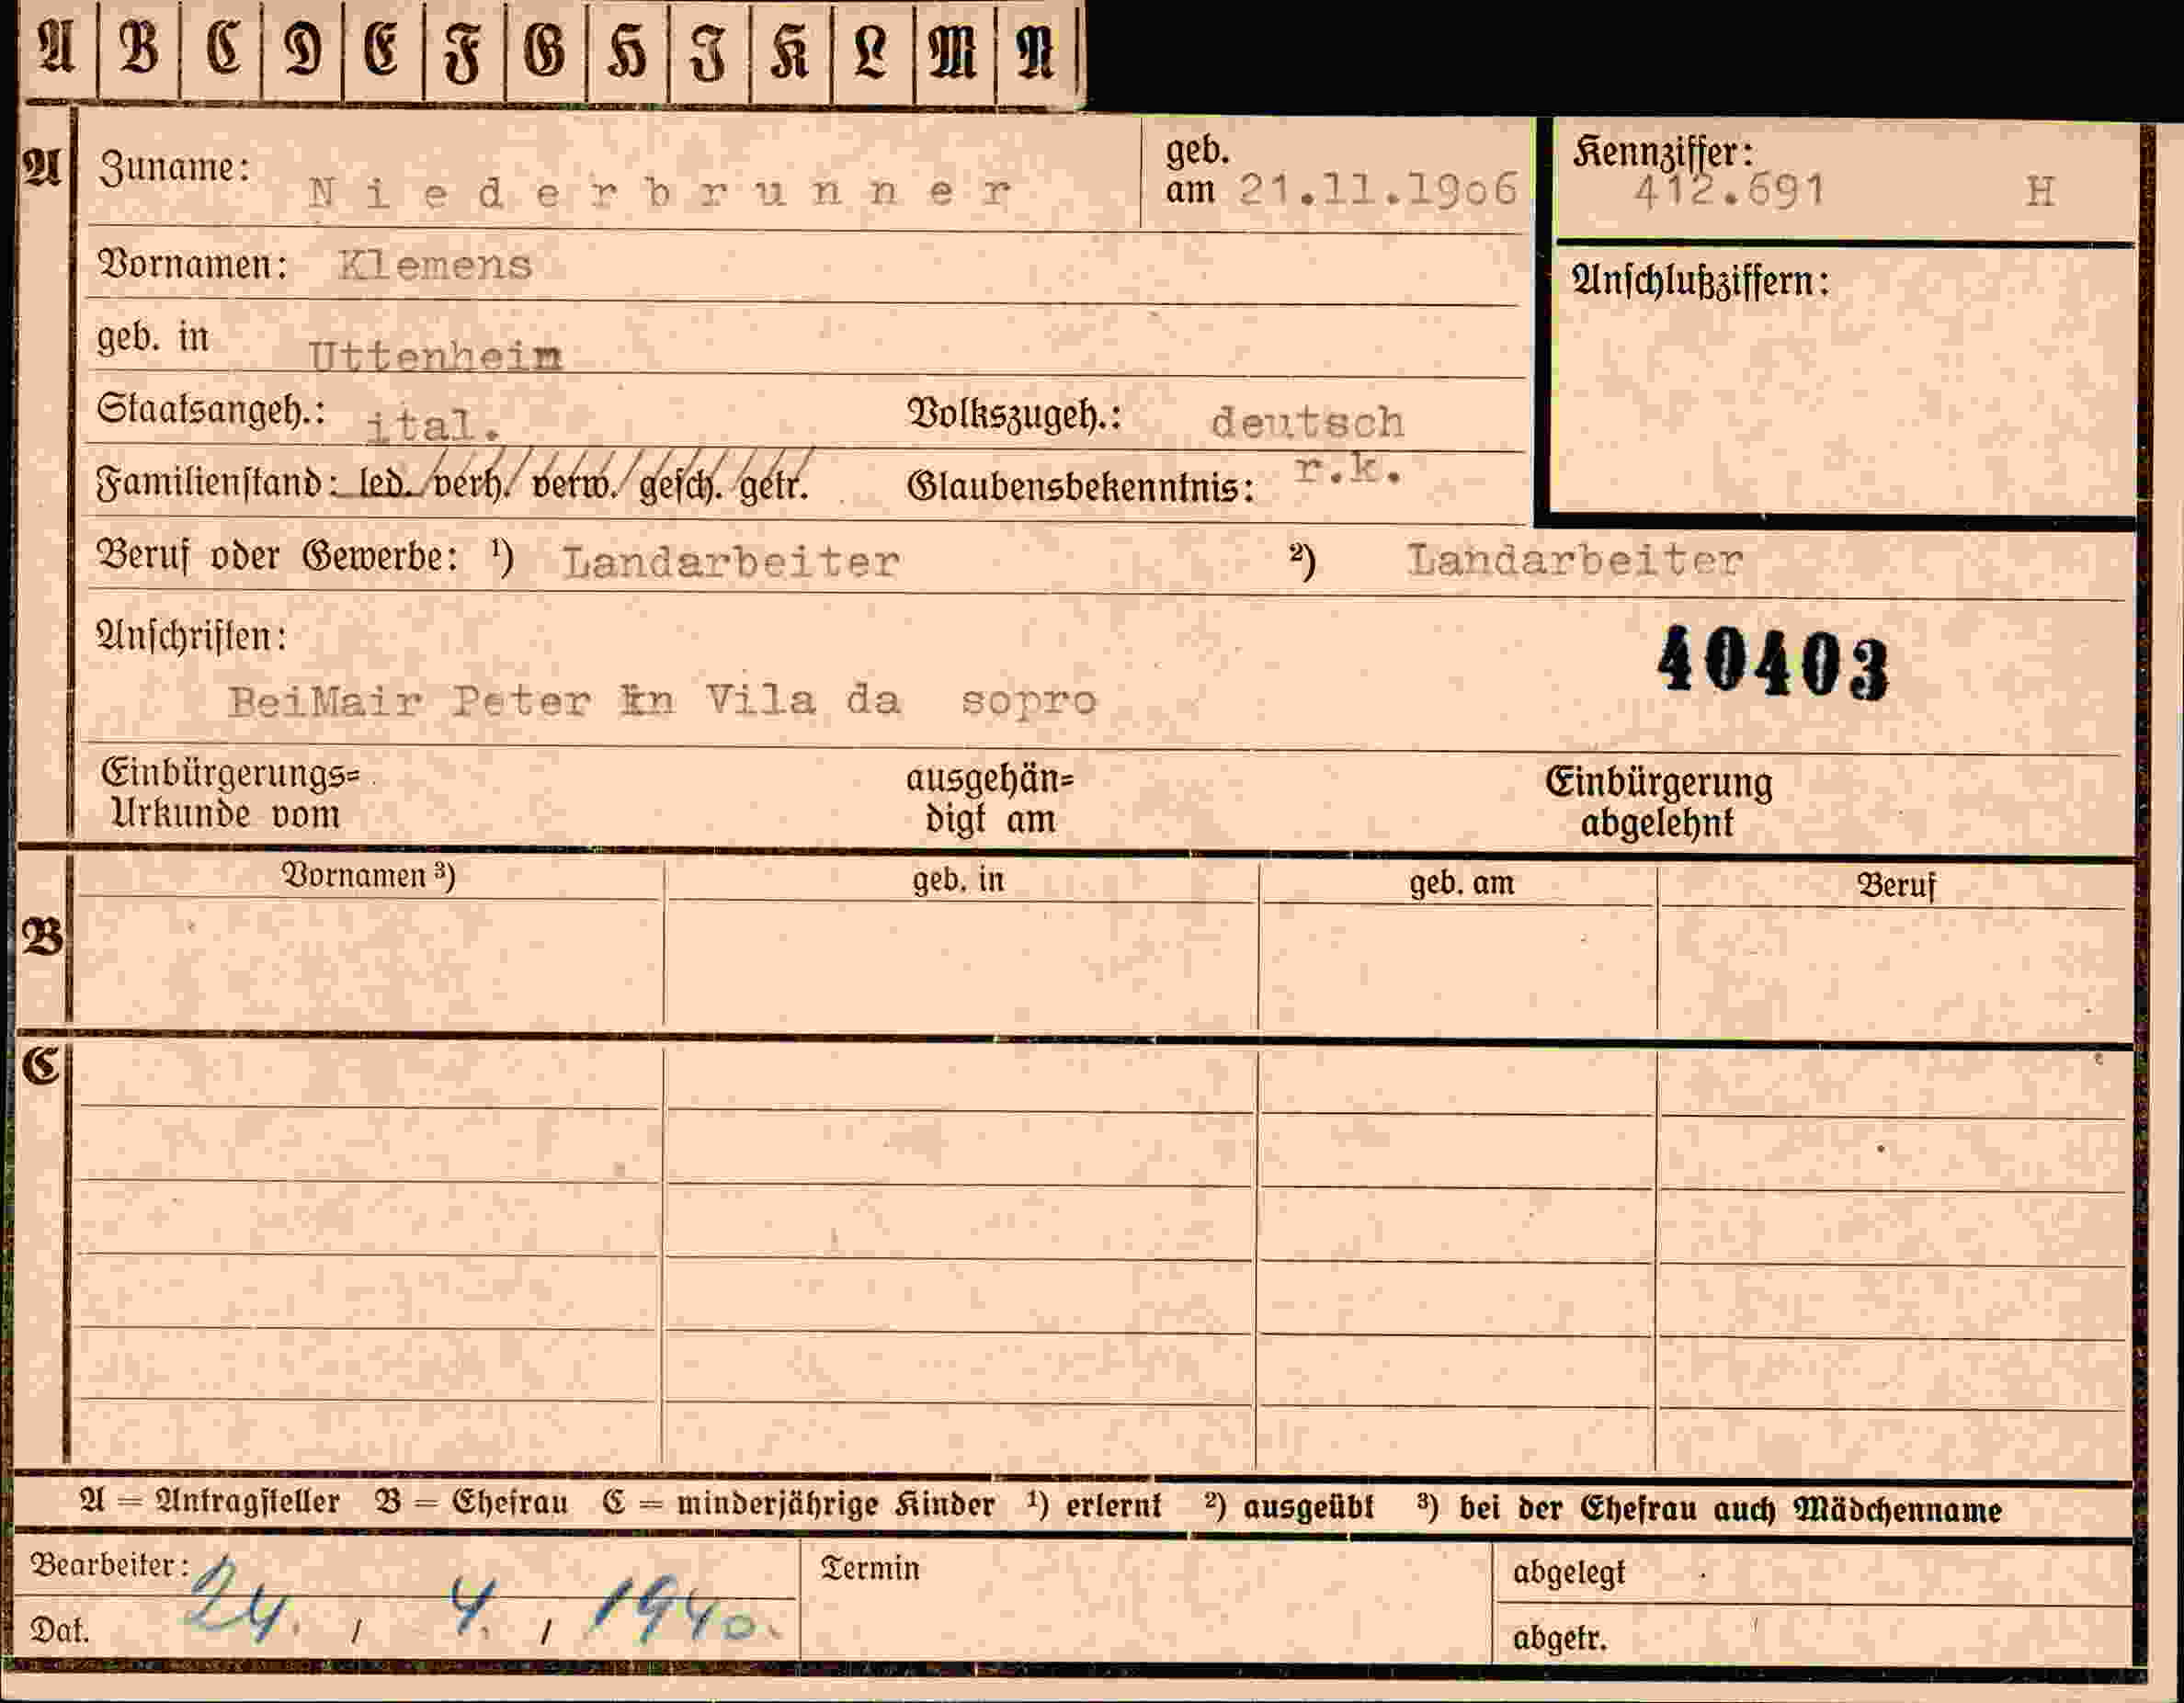 A B C D E F G H I K L M N
A Zuname: Niederbrunner geb. am 21.11.1906 Kennziffer: 412.691 H
Vornamen: Klemens Anschlußziffern:
geb. in Uttenheim
Staatsangeh.: ital. Volkszugeh.: deutsch
Familienstand: led. verh. verw. gesch. getr. Glaubensbekenntnis: r.k.
Beruf oder Gewerbe: ¹) Landarbeiter ²) Landarbeiter
Anschriften:
40403
BeiMair Peter in Vila da sopro
Einbürgerungs= ausgehän= Einbürgerung
Urkunde vom digt am abgelehnt
Vornamen ³) geb. in geb. am Beruf
B
C
A = Antragsteller B = Ehefrau C = minderjährige Kinder ¹) erlernt ²) ausgeübt ³) bei der Ehefrau auch Mädchenname
Bearbeiter: Termin abgelegt
Dat. 24. / 4. / 1940. abgetr.